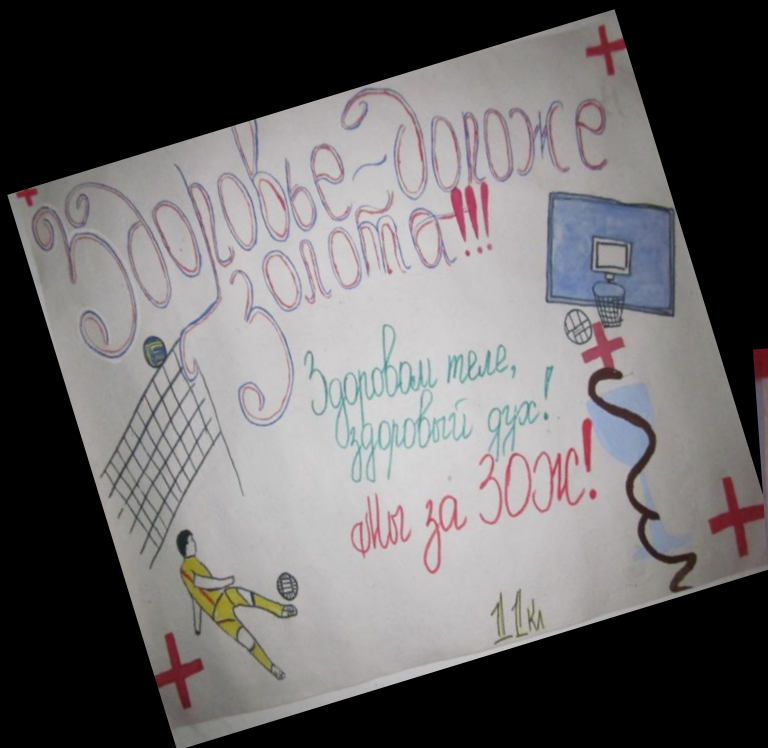 Здоровье-дороже
золота!!!
Здоровом теле,
здоровый дух!
Мы за ЗОЖ!
11кл